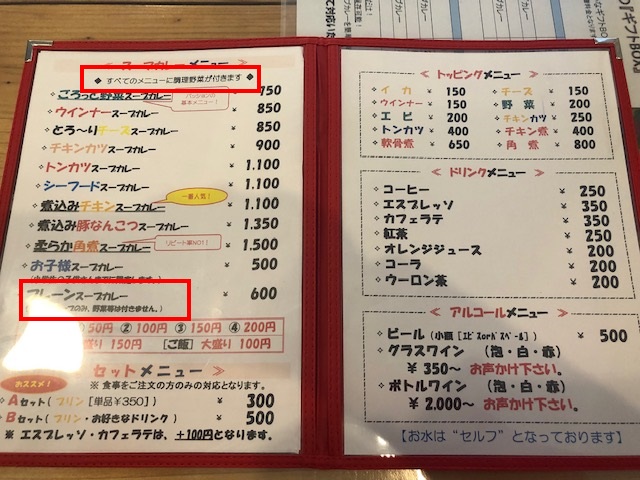 スープカレーメニュー
◆ すべてのメニューに調理野菜が付きます ◆
ごろっと野菜スープカレー ¥ 750
基本メニュー！
ウインナースープカレー ¥ 850
とろ〜りチーズスープカレー ¥ 850
チキンカツスープカレー ¥ 900
トンカツスープカレー ¥ 1.100
シーフードスープカレー ¥ 1.100
一番人気！
煮込みチキンスープカレー ¥ 1.100
煮込み豚なんこつスープカレー ¥ 1.350
柔らか角煮スープカレー ¥ 1.500
リピート率NO1！
お子様スープカレー ¥ 500
プレーンスープカレー ¥ 600
のみ、野菜等は付きません。）
50円 ② 100円 ③ 150円 ④ 200円
盛り 150円 [ご飯] 大盛り 100円
≪ セットメニュー ≫
おススメ！
※ 食事をご注文の方のみの対応となります。
Aセット（プリン［単品¥350］） ¥ 300
Bセット（プリン・お好きなドリンク） ¥ 500
※ エスプレッソ・カフェラテは、＋100円となります。
≪ トッピングメニュー ≫
イカ ¥ 150 チーズ ¥ 150
ウインナー ¥ 150 野菜 ¥ 200
エビ ¥ 200 チキンカツ ¥ 250
トンカツ ¥ 400 チキン煮 ¥ 400
軟骨煮 ¥ 650 角煮 ¥ 800
≪ ドリンクメニュー ≫
コーヒー ¥ 250
エスプレッソ ¥ 350
カフェラテ ¥ 350
紅茶 ¥ 250
オレンジジュース ¥ 200
コーラ ¥ 200
ウーロン茶 ¥ 200
≪ アルコールメニュー ≫
ビール（小瓶［ヱビスorﾊﾞｽﾍﾟｰﾙ］） ¥ 500
グラスワイン （泡・白・赤）
¥ 350〜 お声かけ下さい。
ボトルワイン （泡・白・赤）
¥ 2.000〜 お声かけ下さい。
【お水は“セルフ”となっております】